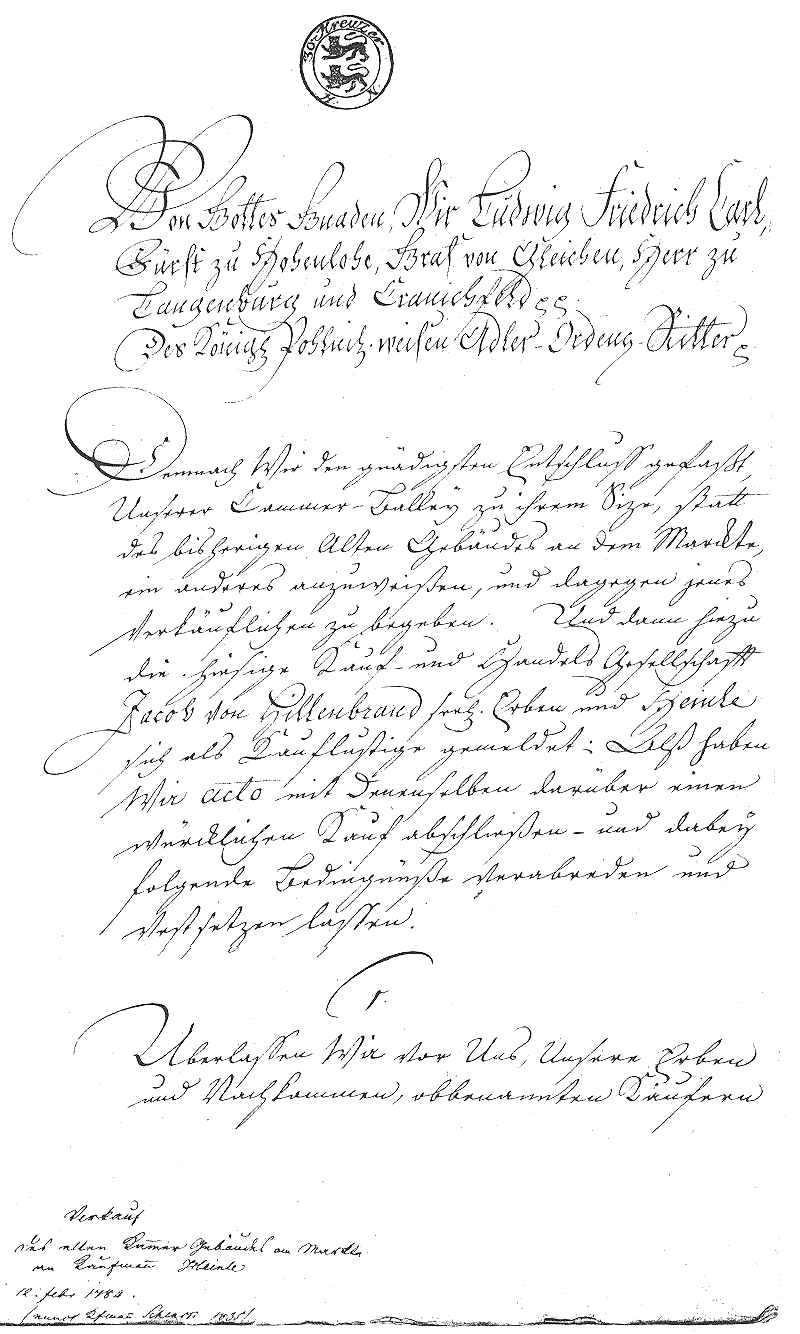 30 Kreuzer
H. N.
Von Gottes Gnaden, Wir Ludwig Friedrich Carl,
Fürst zu Hohenlohe, Graf von Gleichen, Herr zu
Langenburg und Cranichfeld
Des Königl. Pohlnisch. weisen Adler-Ordens-Ritter
Demnach Wir den gnädigsten Entschluss gefaßt,
Unserer Cammer-Balley zu ihrem Size, statt
des bisherigen Alten Gebäudes an dem Marckte,
ein anderes anzuweißen, und dagegen jenes
verkäuflichen zu begeben. Und dann hiezu
die hiesige Kauf- und Handels Gesellschafft
Jacob von Hillenbrand seel. Erben und Heinle
sich als Kauflustige gemeldet: Alß haben
Wir acto mit denenselben darüber einen
würcklichen Kauf abschließen- und dabey
folgende Bedingnüße verabreden und
vestsetzen lassen.
1.
Uberlassen Wir vor Uns, Unsere Erben
und Nachkommen, obbenannten Käufern
Verkauf
des alten Kamer Gebäudes am Markte
an Kaufmann Heinle
12. febr 1782.
1835